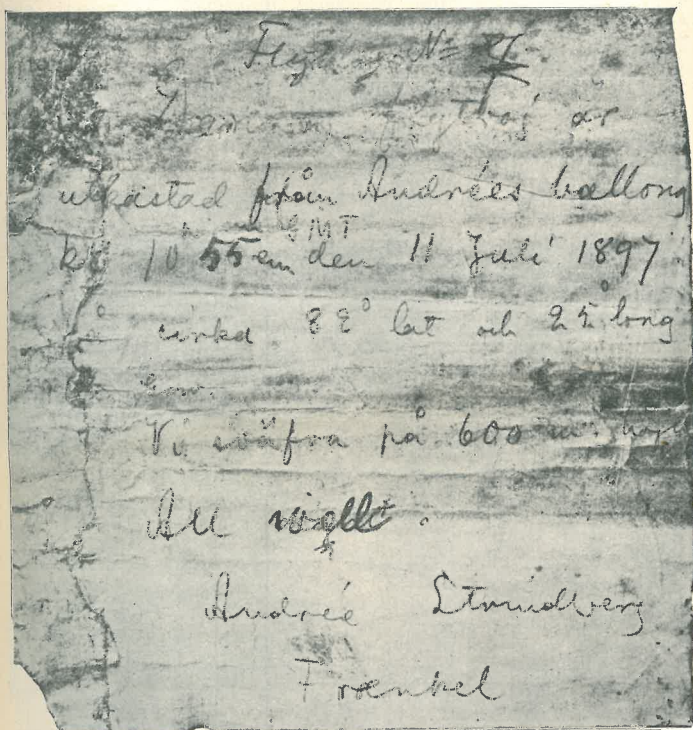 Flytboj №
Denna flytboj är
utkastad från Andrées ballong
kl 10 55 em GMT den 11 Juli 1897
på cirka 82° lat och 25° long
Vi sväfva på 600 m. höjd
All well.
Andrée Strindberg
Fraenkel